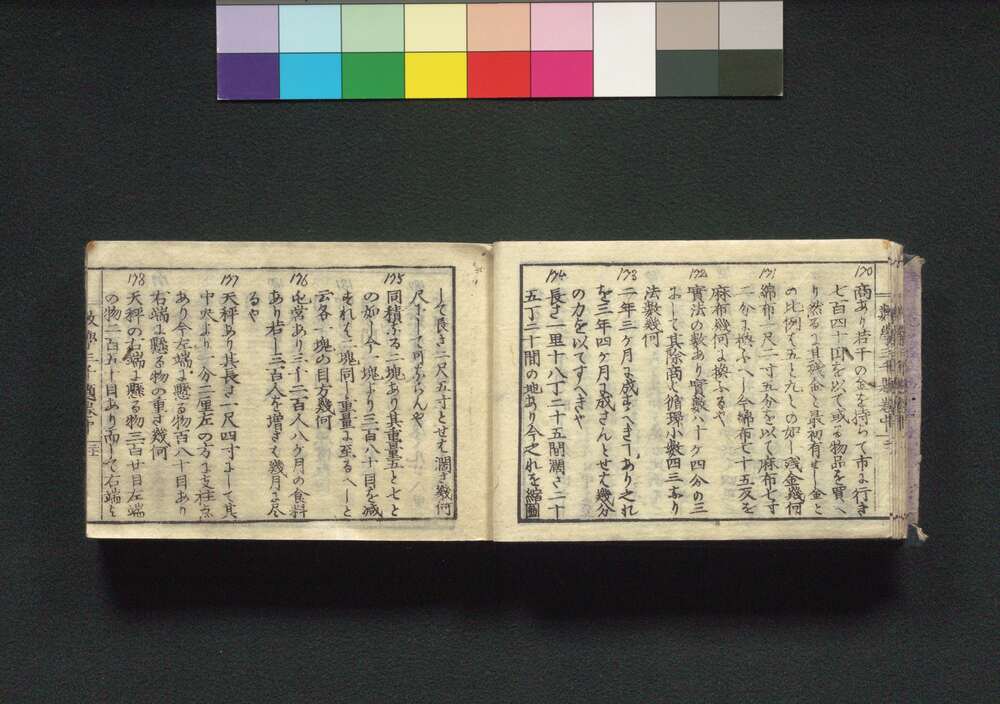 170
商あり若干の金を持ちて市に行き
七百四十圓を以て或る物品を買へ
り然るに其残金と最初有せし金と
の比例ハ五と九しの如し残金幾何
171
綿布一尺二寸五分を以て麻布七寸
二分に換ふへし今綿布七十五反を
麻布幾何に換ふるや
172
實法の数あり實数八十ケ四分の三
にして其除商ハ循環小数四三なり
法数幾何
173
二年三ケ月に成すへき工あり之れ
を三年四ケ月に成さんとせは幾分
の力を以てすへきや
174
長さ一里十八丁二十五間濶さ二十
五丁二十間の地あり今之れを縮圖
して長さ二尺五寸とせは濶さ幾何
尺にして可ならんや
175
同積なる二塊あり其重量五と七と
の如し今一塊より三百八十目を減
すれは二塊同し重量に至るへしと
云各一塊の目方幾何
176
屯営あり三千二百人八ケ月の食料
あり若し三百人を増さは幾月に尽
るや
177
天秤あり其長さ一尺四寸にして其
中央より一分二厘左の方に支柱点
あり今左端に懸る物百八十目あり
右端に懸る物の重さ幾何
178
天秤の右端に懸る物三百廿目左端
の物二百五十目あり而して右端と